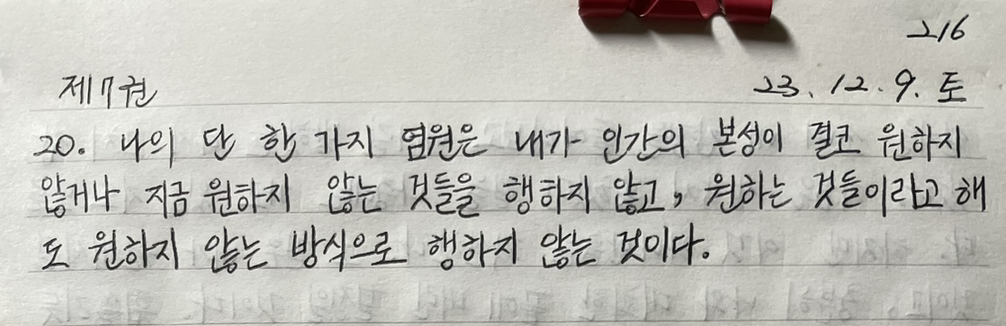 216
제7권 23. 12. 9. 토
20. 나의 단 한 가지 염원은 내가 인간의 본성이 결코 원하지
않거나 지금 원하지 않는 것들을 행하지 않고, 원하는 것들이라고 해
도 원하지 않는 방식으로 행하지 않는 것이다.